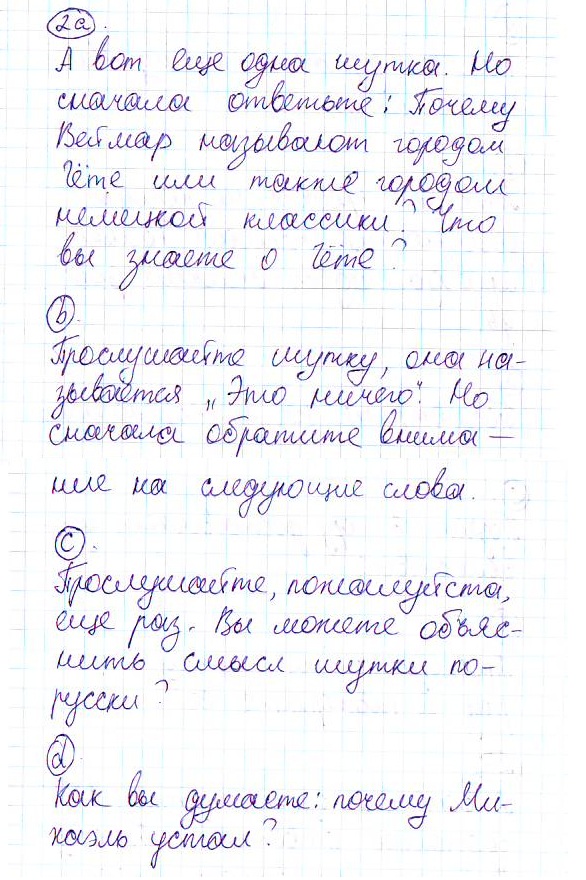 2a.
А вот еще одна шутка. Но
сначала ответьте: Почему
Веймар называют городом
Гёте или также городом
немецкой классики? Что
вы знаете о Гёте?
b
Прослушайте шутку, она на-
зывается „Это ничего“. Но
сначала обратите внима–
ние на следующие слова.
c.
Прослушайте, пожалуйста,
еще раз. Вы можете объяс-
нить смысл шутки по-
русски?
d
Как вы думаете: почему Ми-
хаэль устал?